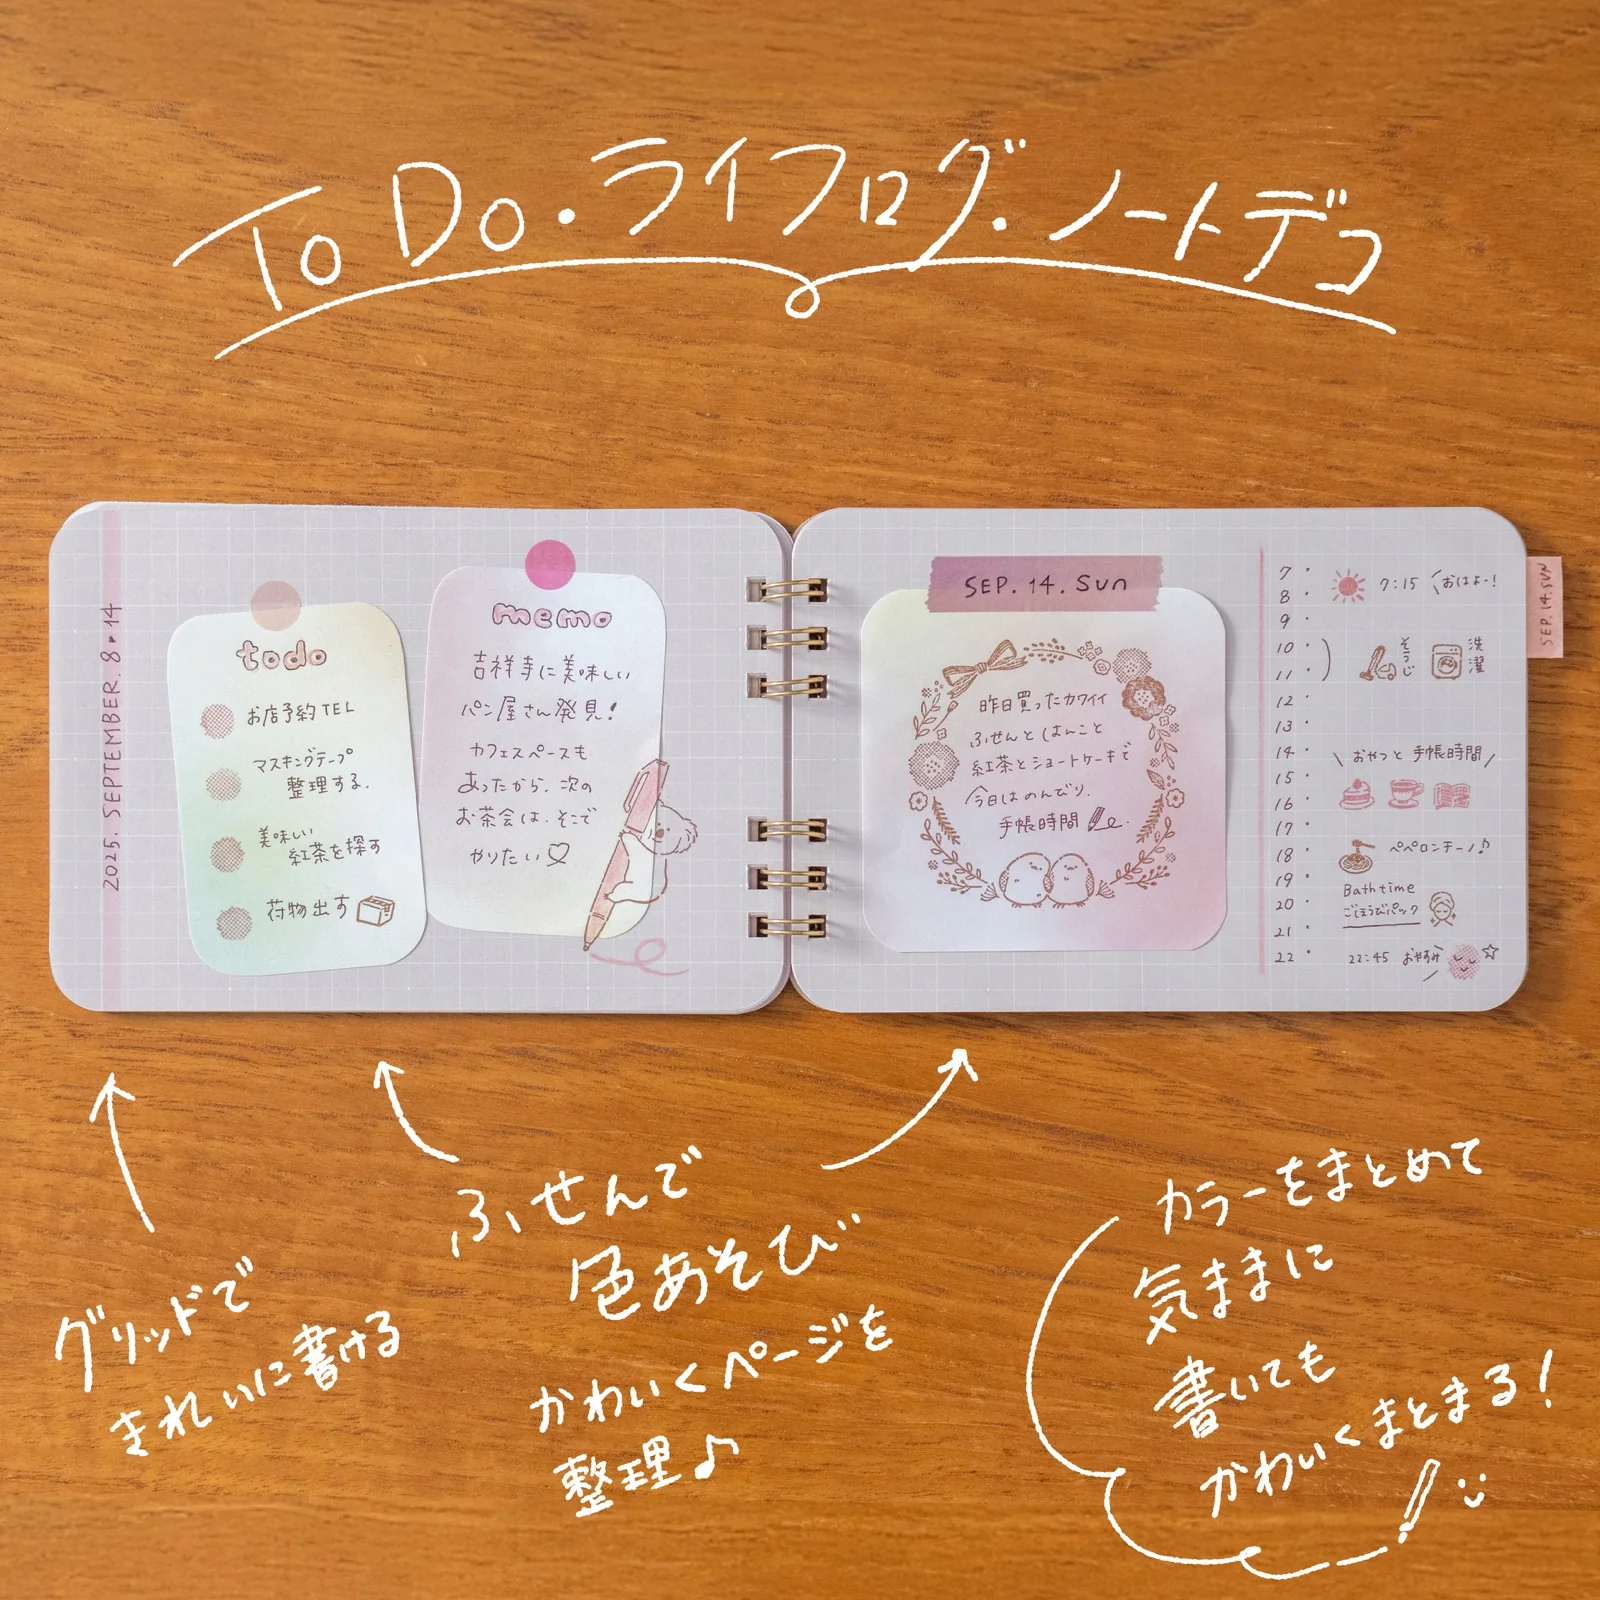 To Do・ライフログ・ノートデコ
2025. SEPTEMBER. 8・14
todo
お店予約TEL
マスキングテープ
整理する.
美味しい
紅茶を探す
荷物出す
memo
吉祥寺に美味しい
パン屋さん発見!
カフェスペースも
あったから、次の
お茶会は、そこで
やりたい♡
SEP. 14. Sun
昨日買ったカワイイ
ふせんとはんこと
紅茶とショートケーキで
今日はのんびり.
手帳時間
7・
8・
9・
10・
11・
12・
13・
14・
15・
16・
17・
18・
19・
20・
21・
22・
7:15 おはよー!
そうじ
洗濯
おやつと手帳時間
ペペロンチーノ♪
Bath time
ごほうびパック
22:45 おやすみ
SEP. 14. SUN
グリッドで
きれいに書ける
ふせんで
色あそび
かわいくページを
整理♪
カラーをまとめて
気ままに
書いても
かわいくまとまる!